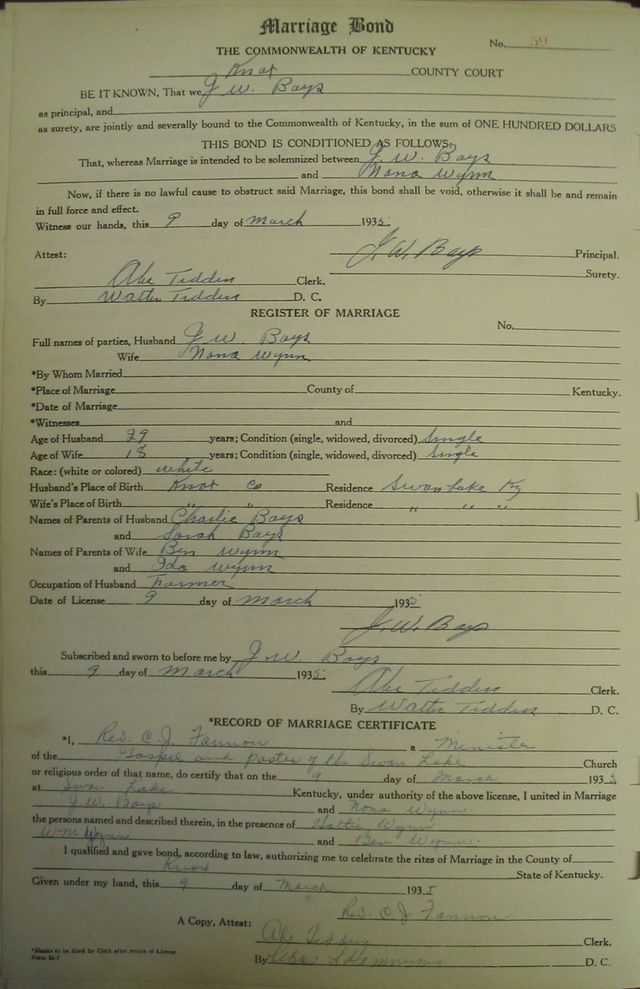 Marriage Bond
No. 59
THE COMMONWEALTH OF KENTUCKY
Knox COUNTY COURT
BE IT KNOWN, That we J. W. Bays
as principal, and
as surety, are jointly and severally bound to the Commonwealth of Kentucky, in the sum of ONE HUNDRED DOLLARS
THIS BOND IS CONDITIONED AS FOLLOWS:
That, whereas Marriage is intended to be solemnized between J. W. Bays
and Nona Wynn
Now, if there is no lawful cause to obstruct said Marriage, this bond shall be void, otherwise it shall be and remain
in full force and effect.
Witness our hands, this 9 day of March 1935
Attest: J. W. Bays Principal.
Surety.
Abe Tedders Clerk.
By Walter Tedders D. C.
REGISTER OF MARRIAGE
No.
Full names of parties, Husband J W Bays
Wife Nona Wynn
*By Whom Married
*Place of Marriage County of Kentucky.
*Date of Marriage
*Witnesses and
Age of Husband 29 years; Condition (single, widowed, divorced) Single
Age of Wife 18 years; Condition (single, widowed, divorced) Single
Race: (white or colored) white
Husband's Place of Birth Knox Co Residence Swan Lake Ky
Wife's Place of Birth " " Residence " " "
Names of Parents of Husband Charlie Bays
and Sarah Bays
Names of Parents of Wife Ben Wynn
and Ida Wynn
Occupation of Husband Farmer
Date of License 9 day of March 1935
J. W. Bays
Subscribed and sworn to before me by J. W. Bays
this 9 day of March 1935
Abe Tedders Clerk.
By Walter Tedders D. C.
*RECORD OF MARRIAGE CERTIFICATE
*I, Rev. C. J. Fannon a Minister
of the Gospel and pastor of the Swan Lake Church
or religious order of that name, do certify that on the 9 day of March 1935
at Swan Lake Kentucky, under authority of the above license, I united in Marriage
J. W. Bays and Nona Wynn
the persons named and described therein, in the presence of Hattie Wynn
Wm Wynn and Ben Wynn.
I qualified and gave bond, according to law, authorizing me to celebrate the rites of Marriage in the County of
Knox State of Kentucky.
Given under my hand, this 9 day of March 1935
Rev. C. J. Fannon
A Copy, Attest: Abe Tedders Clerk.
By D. C.
*Blanks to be filled by Clerk after return of License